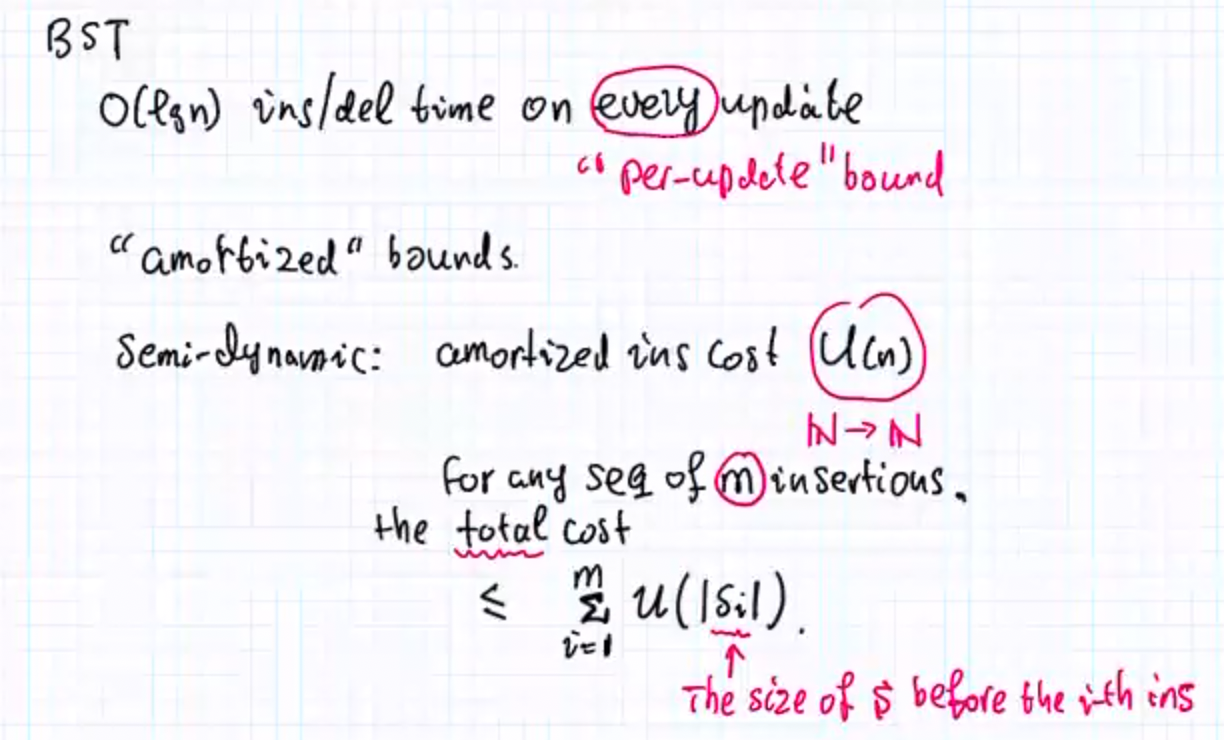 BST
O(lgn) ins/del time on every update
"per-update" bound
"amortized" bounds.
Semi-dynamic: amortized ins cost U(n)
ℕ → ℕ
for any seq of m insertions.
the total cost
≤ m∑i=1 U(|Si|).
↑
The size of S before the i-th ins